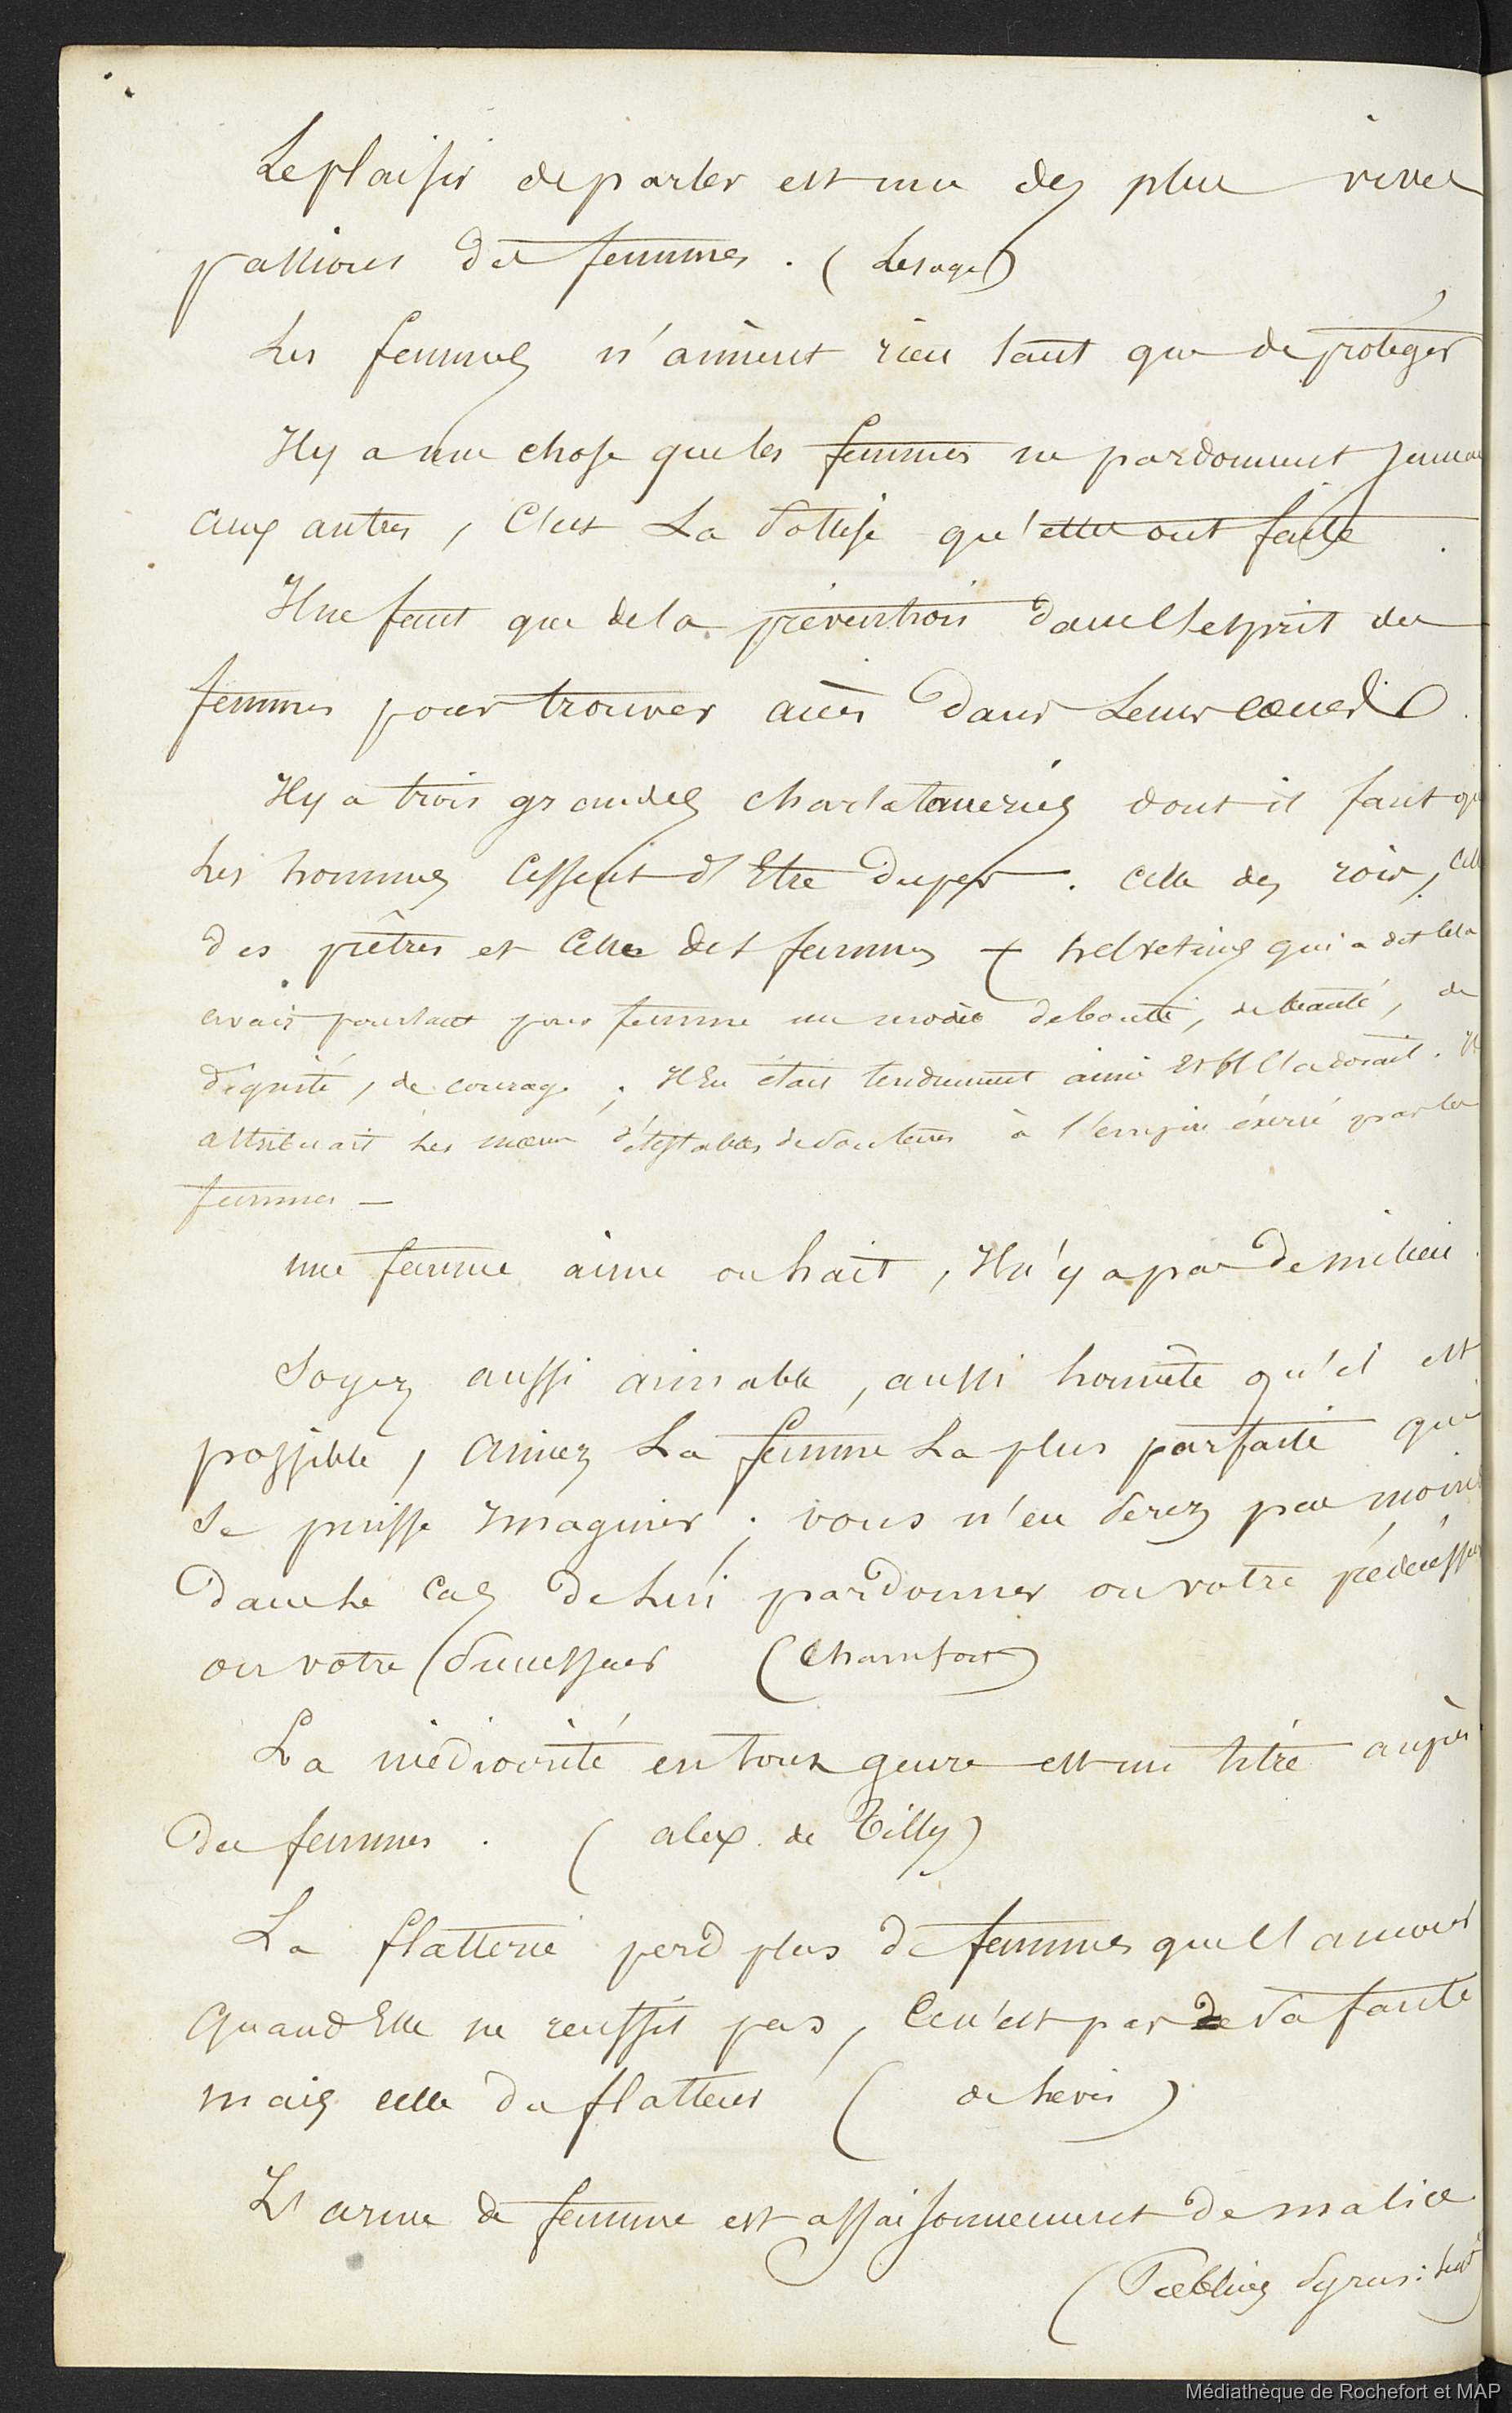 Le plaisir de parler est une des plus vives
passions des femmes. (Lesage)
Les femmes n'aiment rien tant que de protéger
Il y a une chose que les femmes ne pardonnent jamais
aux autres, C'est La sottise qu'elles ont faite.
Il ne faut que de la prévention dans l'esprit des
femmes pour trouver accès dans Leur coeur.
Il y a trois grandes charlataneries dont il faut que
les hommes cessent d'Etre dupes. Celle des rois, celle
des prêtres et Celle des femmes + helvetius qui a dit cela
avait pourtant pour femme un modèle de bonté, de beauté, de
dignité, de courage; Il En était tendrement aimé Et Il l'adorait. Il
attribuait les moeurs détestables à l'empire éxercé par les
femmes —
une femme aime ou hait, Il n'y a pas de milieu.
Soyez aussi aimable, aussi honnête qu'il est
possible, aimez La femme La plus parfaite qui
se puisse Imaginer; vous n'en serez pas moins
dans le cas de Lui pardonner ou votre prédécesseur
ou votre successeur (Chamfort)
La médiocrité en tout genre est un titre auprès
des femmes. (alex. de Tilly)
La flatterie perd plus de femmes que l'amour
quand Elle ne reussit pas, Ce n'est pas de sa faute
mais celle du flatteur (de Levis)
L'arme de femme est assaisonnement de malice
(Publius Syrus:
Médiathèque de Rochefort et MAP